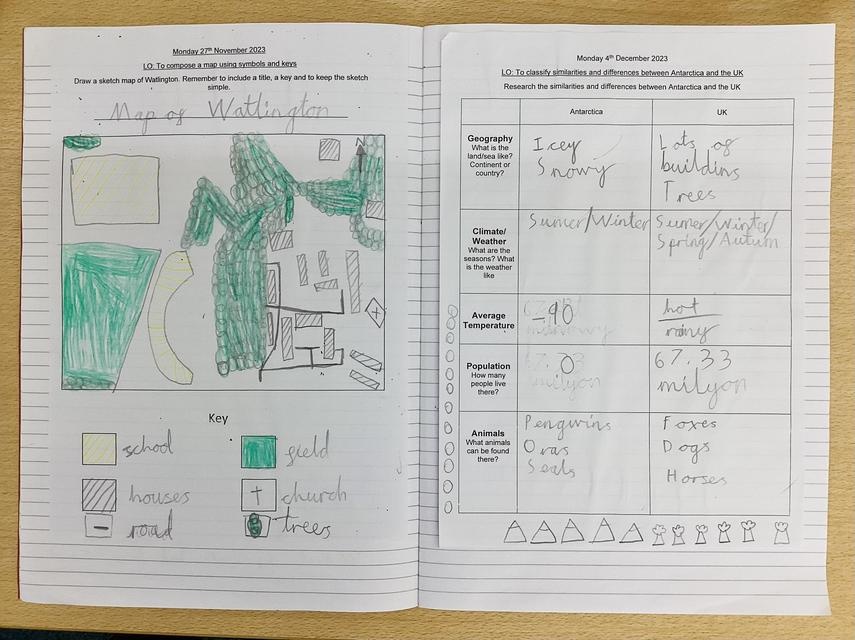 Monday 27th November 2023
LO: To compose a map using symbols and keys
Draw a sketch map of Watlington. Remember to include a title, a key and to keep the sketch
simple.
Map of Watlington
N
Key
school
field
houses
church
road
trees
Monday 4th December 2023
LO: To classify similarities and differences between Antarctica and the UK
Research the similarities and differences between Antarctica and the UK
Antarctica
UK
Geography
What is the
land/sea like?
Continent or
country?
Icey
Snowy
Lots of
buildins
Trees
Climate/
Weather
What are the
seasons? What
is the weather
like
Sumer/Winter
Sumer/Winter/
Spring/Autum
Average
Temperature
-90
hot
rainy
Population
How many
people live
there?
0
67.33
milyon
Animals
What animals
can be found
there?
Penguins
Oras
Seals
Foxes
Dogs
Horses